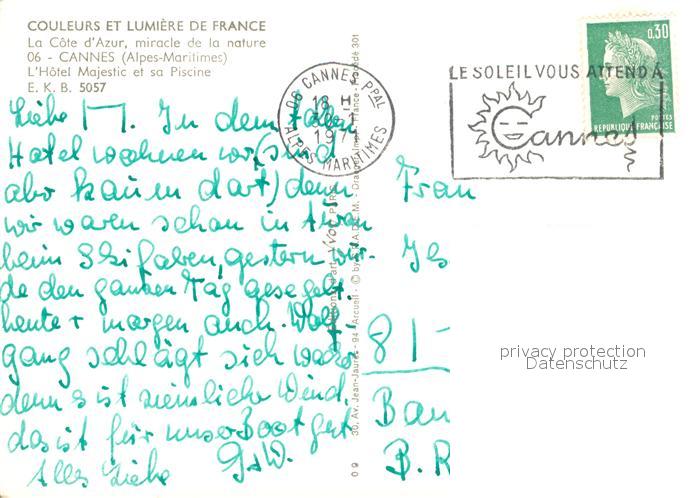 COULEURS ET LUMIÈRE DE FRANCE
La Côte d'Azur, miracle de la nature
06 - CANNES (Alpes-Maritimes)
L'Hôtel Majestic et sa Piscine
E. K. B. 5057
06 CANNES PPAL
18 H
197
ALPES MARITIMES
LE SOLEIL VOUS ATTEND A
Cannes
0,30
POSTES
REPUBLIQUE FRANÇAISE
Liebe M. In dem tollen
Hotel wohnen wir (sind
aber kaum dort) denn
wir waren schon in
beim Skifahren, gestern wur-
de den ganzen Tag gesegelt.
heute + morgen auch. Wolf-
gang schlägt sich wacker
denn s ist ziemliche Wind,
das ist für unser Boot gut
Alles Liebe
Frau
81-
B.R
30, Av. Jean-Jaurès - 94 Arcueil - © by
privacy protection
Datenschutz